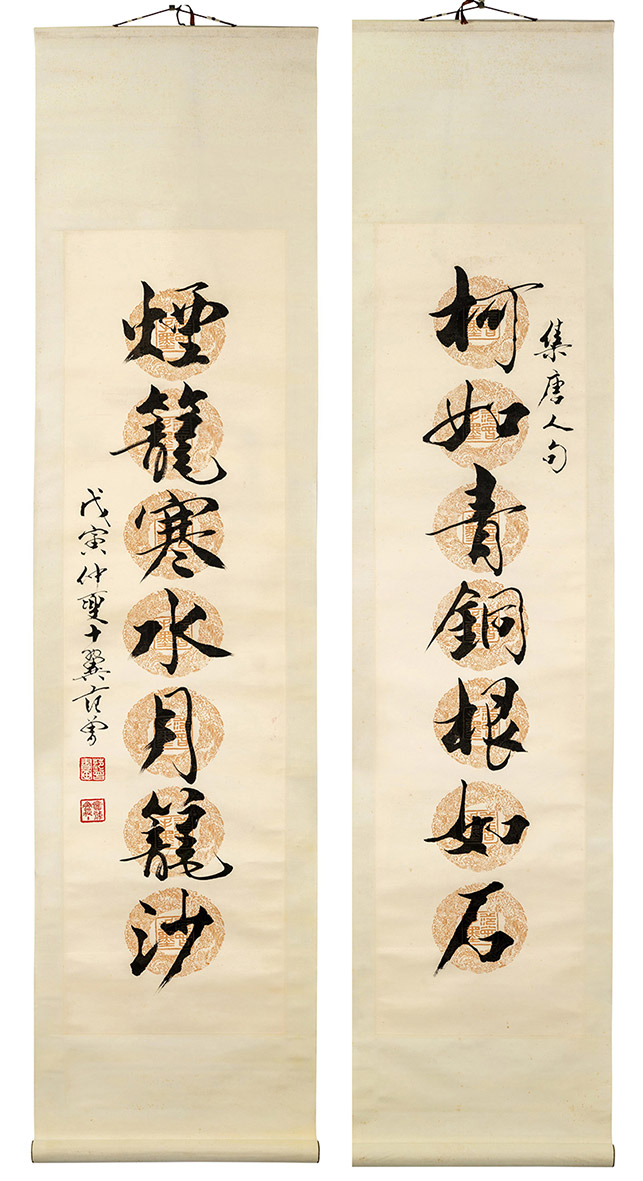 集唐人句
柯如青銅根如石
煙籠寒水月籠沙
戊寅仲夏十翼范曾